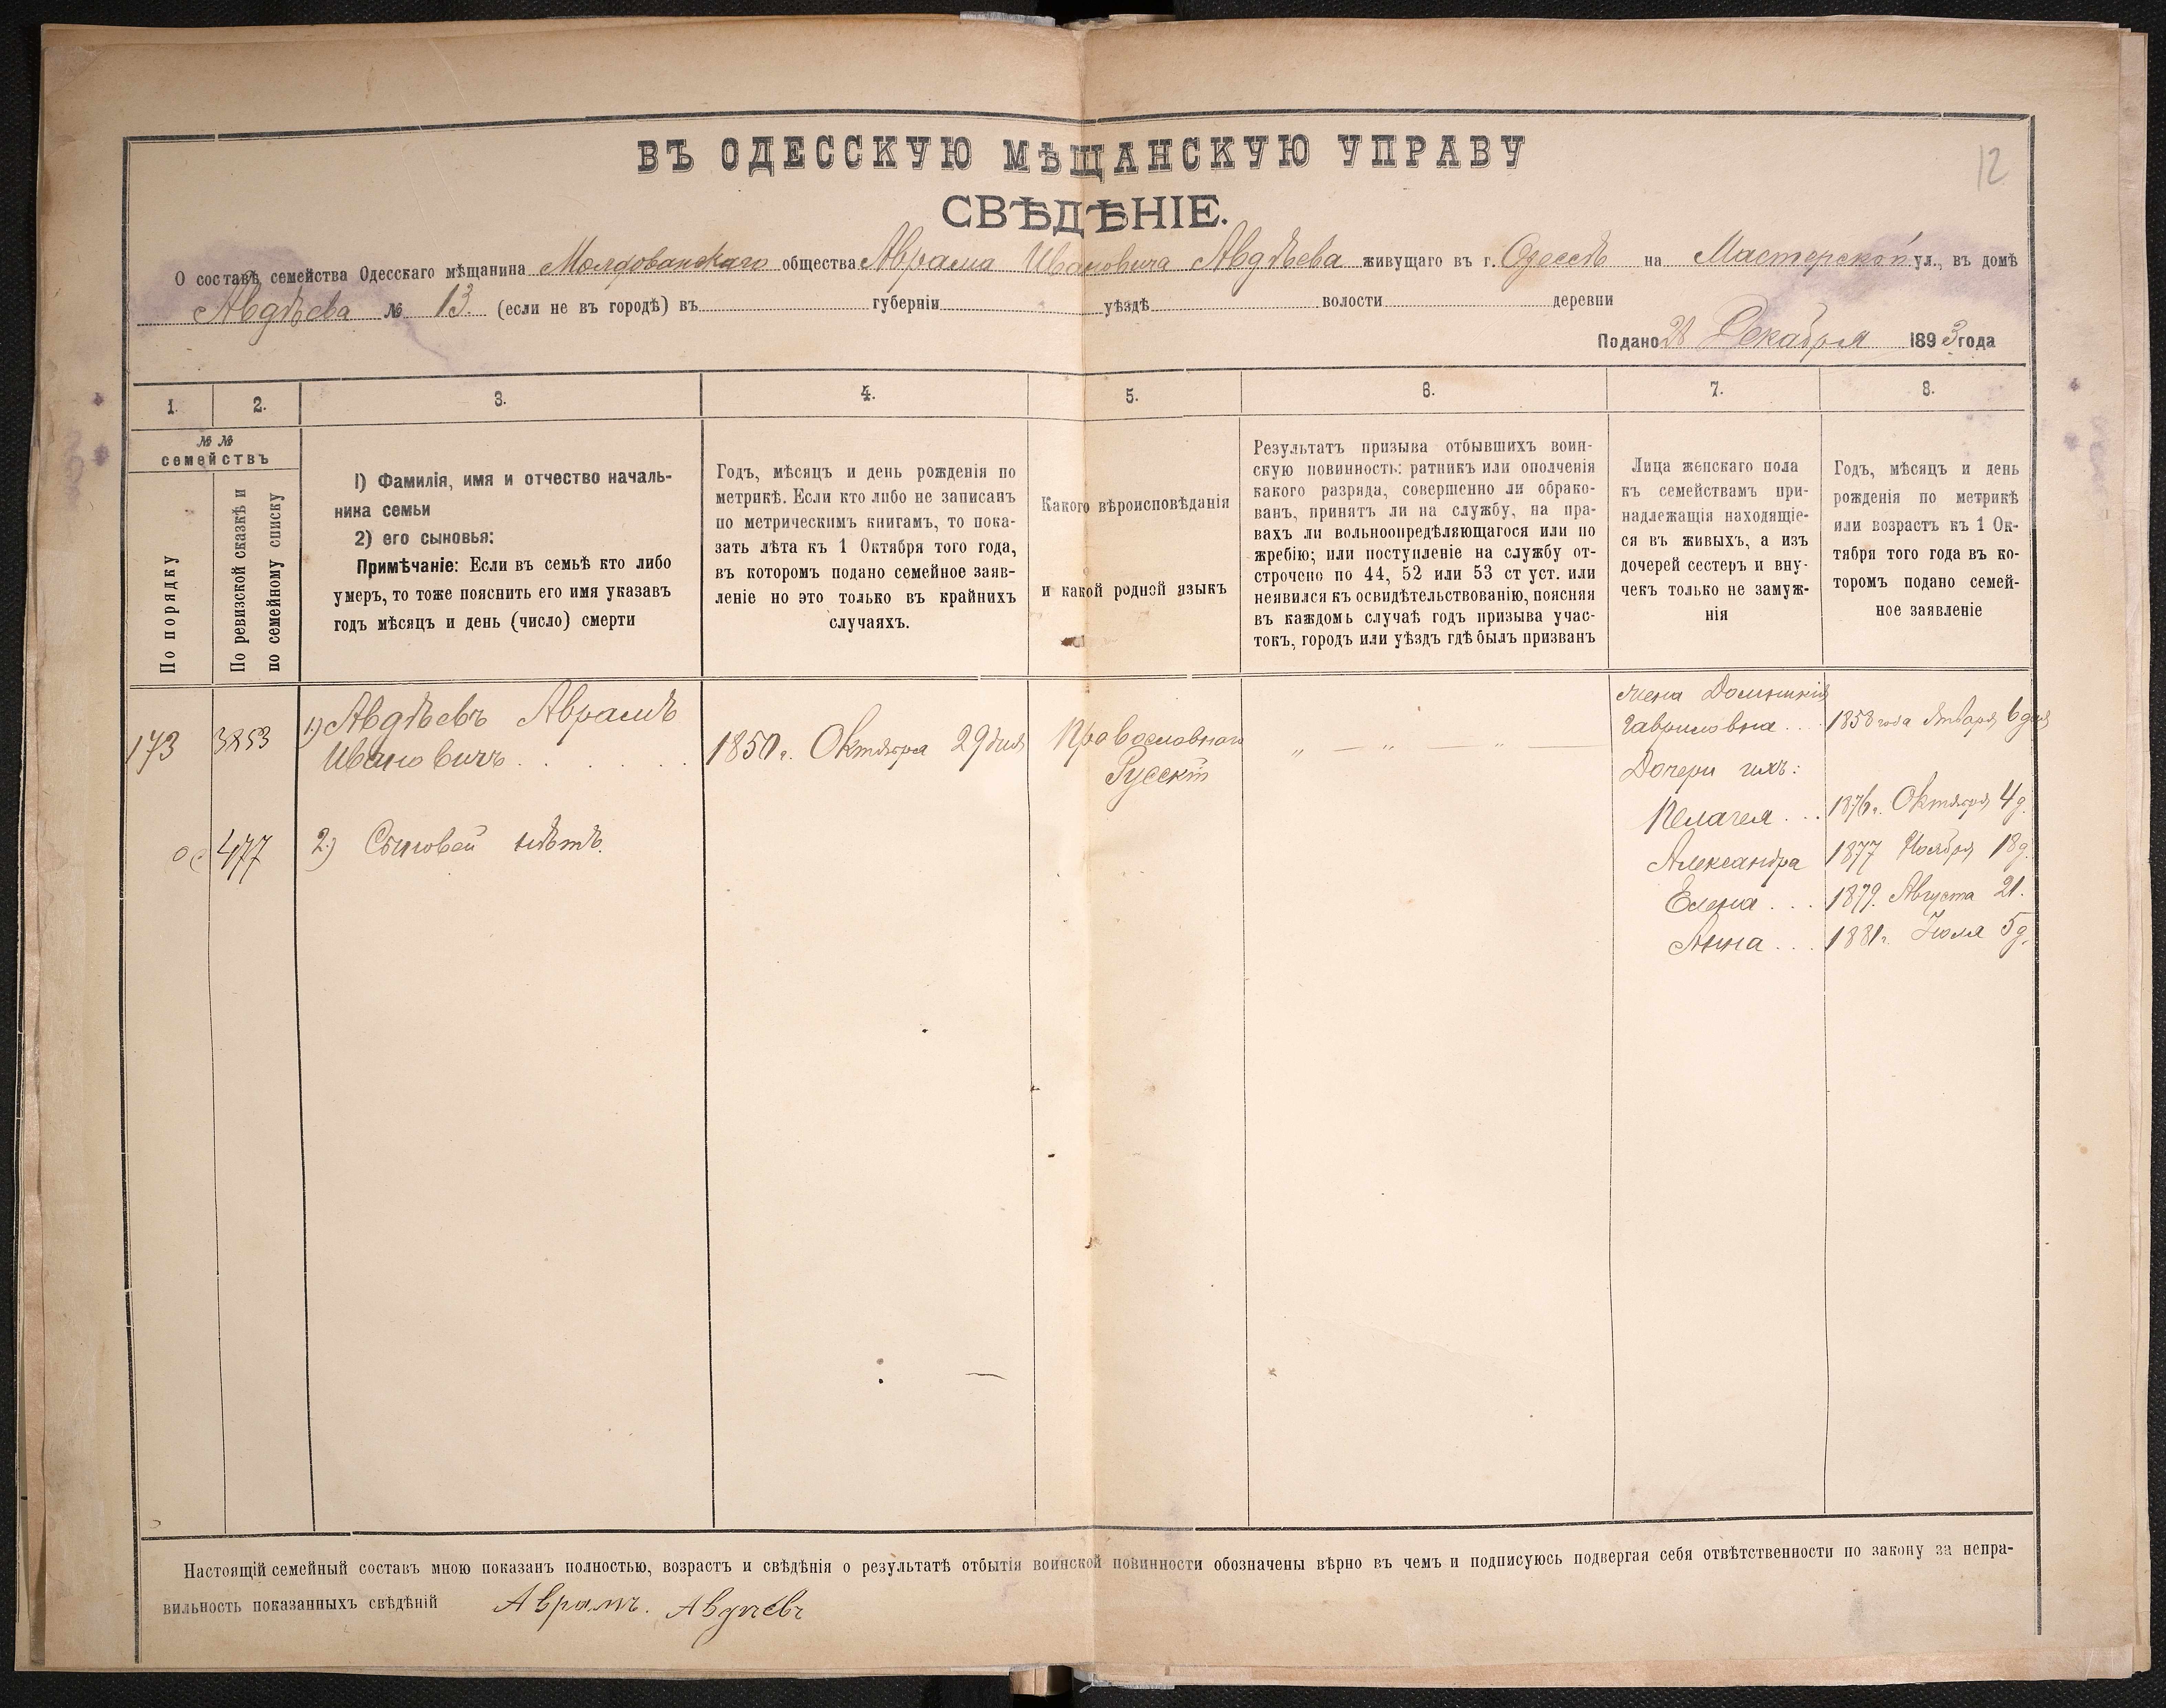 ВЪ ОДЕССКУЮ МѢЩАНСКУЮ УПРАВУ
12
СВѢДѢНІЕ.
О составѣ семейства Одесскаго мѣщанина Молдованскаго общества Аврама Ивановича Авдѣева живущаго въ г. Одессѣ на Мастерской ул., въ домѣ
Авдѣева № 13. (если не въ городѣ) въ губерніи уѣздѣ волости деревни
Подано 28 Декабря 1893 года
1. 2. 3. 4. 5. 6. 7. 8.
№ №
семействъ
По порядку
По ревизской сказкѣ и
по семейному списку
1) Фамилія, имя и отчество началь-
ника семьи
2) его сыновья:
Примѣчаніе: Если въ семьѣ кто либо
умеръ, то тоже пояснить его имя указавъ
годъ мѣсяцъ и день (число) смерти
Годъ, мѣсяцъ и день рожденія по
метрикѣ. Если кто либо не записанъ
по метрическимъ книгамъ, то пока-
зать лѣта къ 1 Октября того года,
въ которомъ подано семейное заяв-
леніе но это только въ крайнихъ
случаяхъ.
Какого вѣроисповѣданія
и какой родной языкъ
Результатъ призыва отбывшихъ воин-
скую повинность: ратникъ или ополченія
какого разряда, совершенно ли обрако-
ванъ, принятъ ли на службу, на пра-
вахъ ли вольноопредѣляющагося или по
жребію; или поступленіе на службу от-
строчено по 44, 52 или 53 ст уст. или
неявился къ освидѣтельствованію, поясняя
въ каждомъ случаѣ годъ призыва учас-
токъ, городъ или уѣздъ гдѣ былъ призванъ
Лица женскаго пола
къ семействамъ при-
надлежащія находящіе-
ся въ живыхъ, а изъ
дочерей сестеръ и вну-
чекъ только не замуж-
нія
Годъ, мѣсяцъ и день
рожденія по метрикѣ
или возрастъ къ 1 Ок-
тября того года въ ко-
торомъ подано семей-
ное заявленіе
173 3853 1) Авдѣевъ Аврамъ
Ивановичъ . . . . .
1850 г. Октября 29 дня
Православнаго
Русскій
„ — „ — „ —
жена Домникія
Гавриловна . . . 1858 года Января 6 дня
Дочери ихъ:
Пелагея . . . 1876 г. Октября 4 д.
477 2) Сыновей нѣтъ.
Александра 1877 Ноября 18 д.
Елена . . . 1879. Августа 21.
Анна . . . 1881 г. Іюля 5 д.
Настоящій семейный составъ мною показанъ полностью, возрастъ и свѣдѣнія о результатѣ отбытія воинской повинности обозначены вѣрно въ чемъ и подписуюсь подвергая себя отвѣтственности по закону за непра-
вильность показанныхъ свѣдѣній Аврамъ. Авдѣевъ